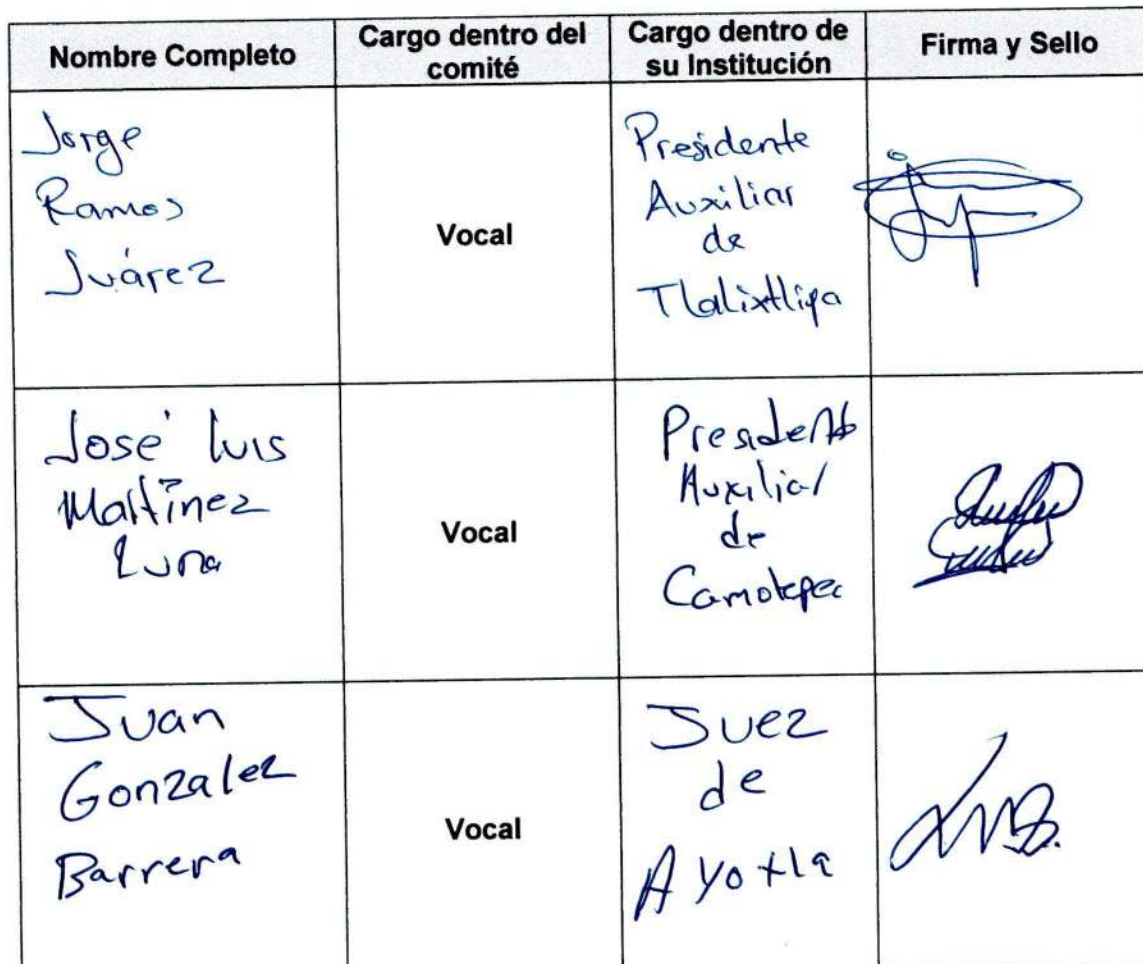 Nombre Completo
Cargo dentro del
comité
Cargo dentro de
su Institución
Firma y Sello
Jorge
Ramos
Juárez
Vocal
Presidente
Auxiliar
de
Tlalixtlipa
José luis
Martínez
Luna
Vocal
Presidente
Auxiliar
de
Camotepec
Juan
Gonzalez
Barrera
Vocal
Juez
de
Ayotla